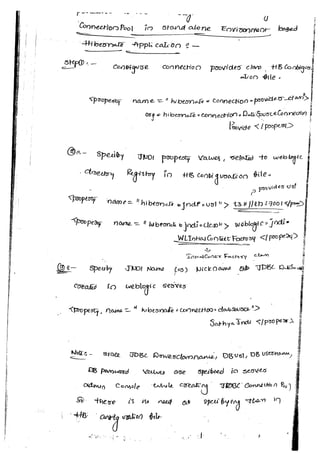 Connection Pool in stand alone Environment based
Hibernate Application :-
step① :- Configure connection provider class HB Configuration file.
<property name = "hibernate.connection.provider_class">
org.hibernate.connection.DataSourceConnection
Provider </property>
②:- Specify JNDI property values, related to weblogic
directory Registry in HB configuration file.
provider url
<property name = "hibernate.jndi.url"> t3://localhost:7001 </prop>
<property name = "hibernate.jndi.class"> weblogic.jndi.
WLInitialContextFactory </property>
InitialContext Factory class
③ :- Specify JNDI Name (or) Nickname of JDBC
created in weblogic server
<property name = "hibernate.connection.datasource">
SathyaJndi </property>
Note :- since JDBC Driverclassname, DB url, DB username,
DB password values are specified in server
admin console while creating JDBC Connection P
So there is no need of specifying them in
HB configuration file.